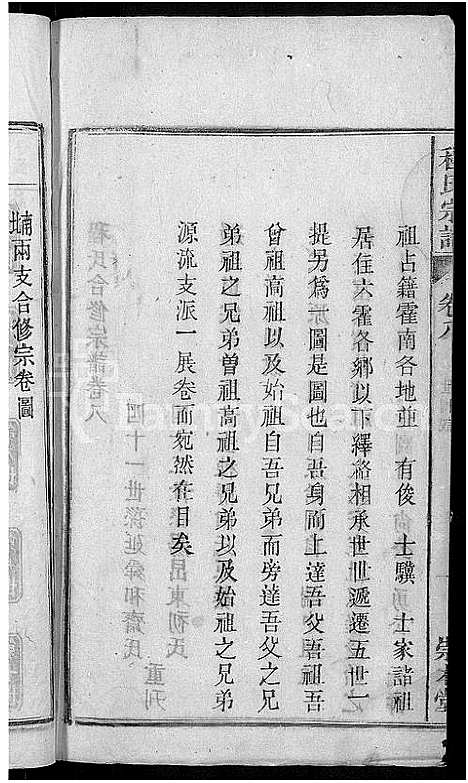 程氏宗譜
卷八
崇本堂
祖占籍霍南各地並 有俊 士驥 士家諸祖
居住六霍各鄉以下繹絡相承世世遞遷五世一
提另為一圖是圖也自吾身而上達吾父吾祖吾
曾祖高祖以及始祖自吾兄弟而旁達吾父之兄
弟祖之兄弟曾祖高祖之兄弟以及始祖之兄弟
源流支派一展卷而宛然在目矣
程氏合修宗譜卷八
四十一世孫延舜和齋氏
重刊
兩支合修宗卷圖